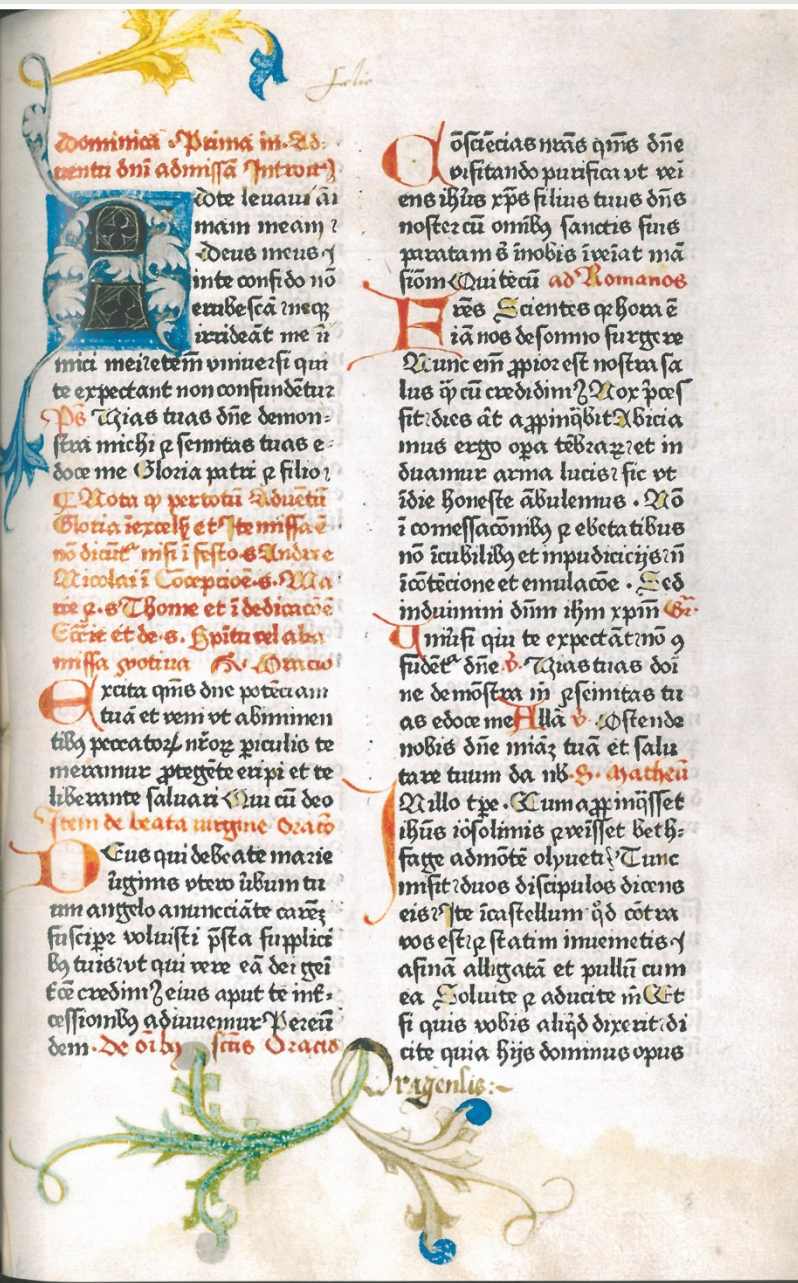 Dominica Prima in Ad-
uentu dnī ad missā Introit⁹
Adte leuaui āi
mam meam ⁊
Deus meus ı
inte confido nō
erubescā ⁊neqꝫ
irrideāt me īi
mici mei ⁊etem̄ vniuersi qui
te expectant non confundētur
Ps Vias tuas dn̄e demon-
stra michi ⁊ semitas tuas e-
doce me Gloria patri ⁊ filio ⁊
¶ Nota ꝙ per totū Aduētū
Gloria ī excels et Ite missa ē
nō dicūt nisi ī festo s Andree
Nicolai ī Cōcepcioē s. Ma
rie ⁊ s Thome et ī dedicacōe
Eccīe et de s. Spiritu vel alia
missa votiua Oracio
Excita qm̄s dn̄e potēciam
tuā et veni vt ab iminen
tibꝰ peccatorꝝ nr̄oꝝ ꝑiculis te
meramur ꝓtegēte eripi et te
liberante saluari Qui cū deo
Item de beata uirgine Oracō
DEus qui de beate marie
v̄ginis vtero v̄bum tu
um angelo anuncciāte carnēꝫ
suscipe voluisti p̄sta supplici
bꝰ tuis ⁊vt qui vere eā dei gēi
tͨcē credimꝰ eius aput te int̄-
cessionibꝰ adiuuemur Per eū
dem. De om̄ibꝰ sctīs Oracio
Cōsciēcias nr̄as qm̄s dn̄e
visitando purifica vt vēi
ens ihūs xp̄s filius tuus dn̄s
noster cū omibꝰ sanctis suis
paratam s̄ īnobis īveīat mā
siōm Qui tecū ad Romanos
Fr̄es Scientes qꝛ hora ē
iā nos de somno surgere
Nunc em̄ ꝓpior est nostra sa
lus ꝙ cū credidimꝰ Nox p̄ces
sit ⁊dies āt appinqͣbit Abicia
mus ergo oꝑa tēbraꝝ ⁊et in
duamur arma lucis ⁊ sic vt
īdie honeste ābulemus . Nō
ī comessacōnibꝰ ⁊ ebetatibus
nō īcubilibꝰ et inpudicicijs ⁊n̄
īcōtēcione et emulacōe . Sed
induimini dn̄m ihm̄ xpm̄ Gr̄.
Vniu̓si qui te expectāt ⁊nō ꝯ
fūdēt dn̄e v̄. Vias tuas doī
ne demōstra m̄ ⁊ semitas tu
as edoce me Allā v̄. Ostende
nobis dn̄e miāꝫ tuā et salu
tare tuum da nb̄. S. Matheū
In illo tp̄e. Cum appinqͣsset
ihūs iōsolimis ⁊ veīsset beth-
fage ad mōtē olyueti Tunc
misit ⁊duos discipulos dicens
eis ⁊Ite īcastellum qd̄ cōtra
vos est ⁊ statim inuenietis
asinā alligatā et pullū cum
ea Soluite ⁊ aducite m̄ Et
si quis vobis aliqd̄ dixerit ⁊di
cite quia hijs dominus opus
Pragensis:~